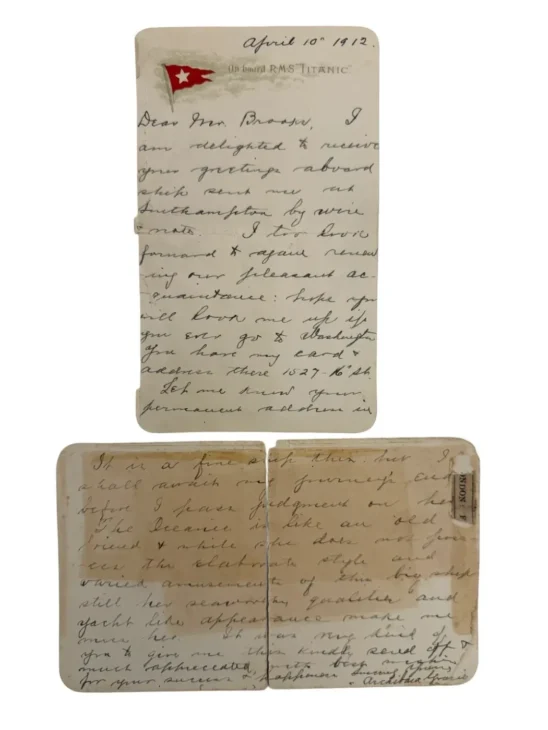 April 10th 1912.
On board R.M.S. "TITANIC"
Dear Mr. , I
am delighted to receive
your greetings aboard
ship sent me at
Southampton by wire
& note. I too look
forward to again renew
-ing our pleasant ac-
quaintance: hope you
will look me up if
you ever go to Washington
You have my card &
address there 1527-16th St
Let me know your
permanent address in
It is a fine ship this but I
shall await my journey's end
before I pass judgment on her
The Oceanic is like an old
friend & while she does not poss-
ess the elaborate style and
varied amusements of this big ship
still her seaworthy qualities and
yacht like appearance make me
miss her. It was very kind of
you to give me this kindly send off &
much appreciated, with best wishes
for your success & happiness
Archibald Gracie